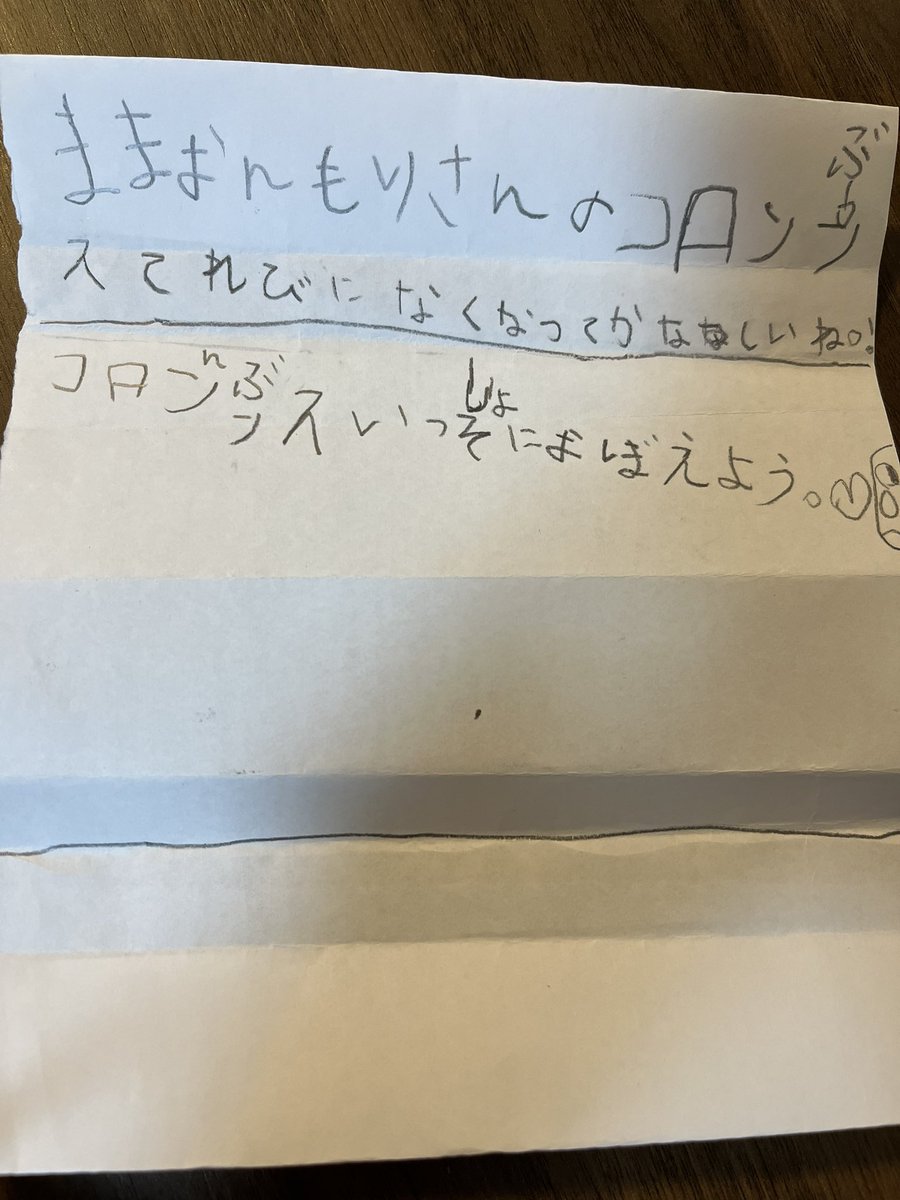 ままおんもりさんのコロンぶ
スてれびになくなってかなしいね。!
コロンぶスいっしょにおぼえよう。